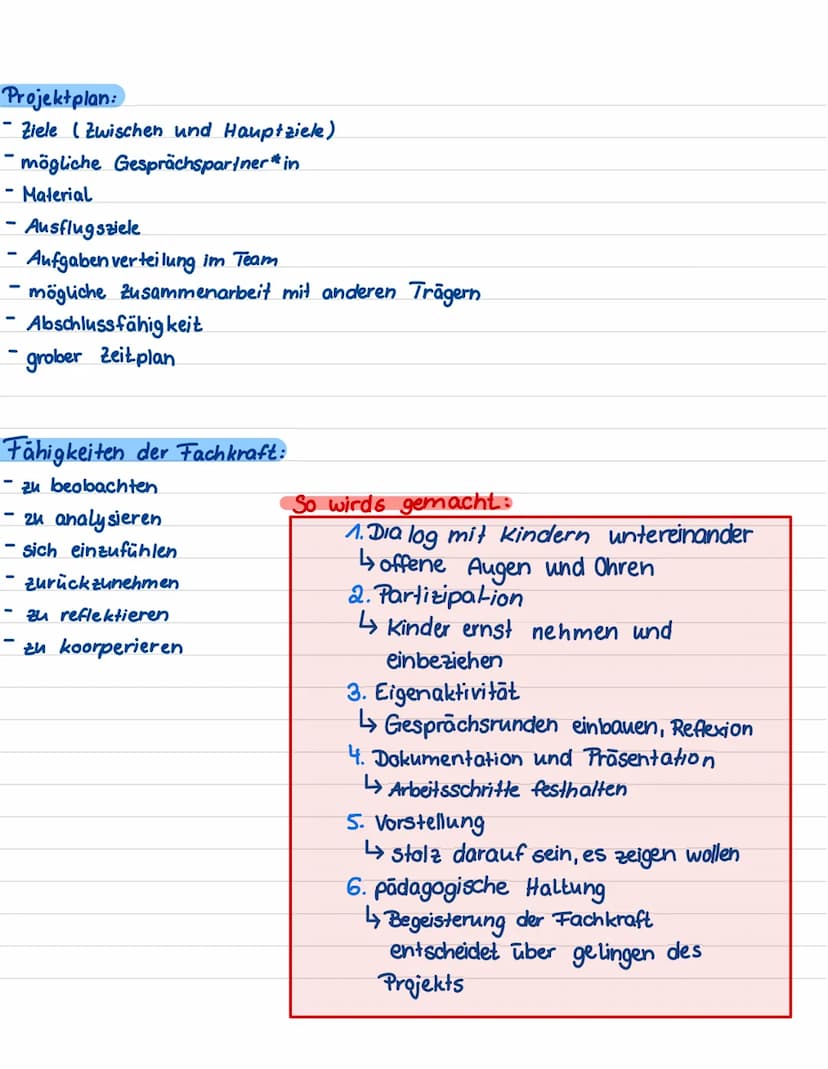 Projektplan:
- Ziele (Zwischen und Hauptziele)
- mögliche Gesprächspartner*in
- Material
- Ausflugsziele
- Aufgabenverteilung im Team
- mögliche Zusammenarbeit mit anderen Trägern
- Abschlussfähigkeit
- grober Zeitplan
Fähigkeiten der Fachkraft:
- zu beobachten
- zu analysieren
- sich einzufühlen
- zurückzunehmen
- zu reflektieren
- zu koorperieren
So wirds gemacht:
1. Dialog mit Kindern untereinander
↳ offene Augen und Ohren
2. Partizipation
↳ Kinder ernst nehmen und
einbeziehen
3. Eigenaktivität
↳ Gesprächsrunden einbauen, Reflexion
4. Dokumentation und Präsentation
↳ Arbeitsschritte festhalten
5. Vorstellung
↳ stolz darauf sein, es zeigen wollen
6. pädagogische Haltung
↳ Begeisterung der Fachkraft
entscheidet über gelingen des
Projekts